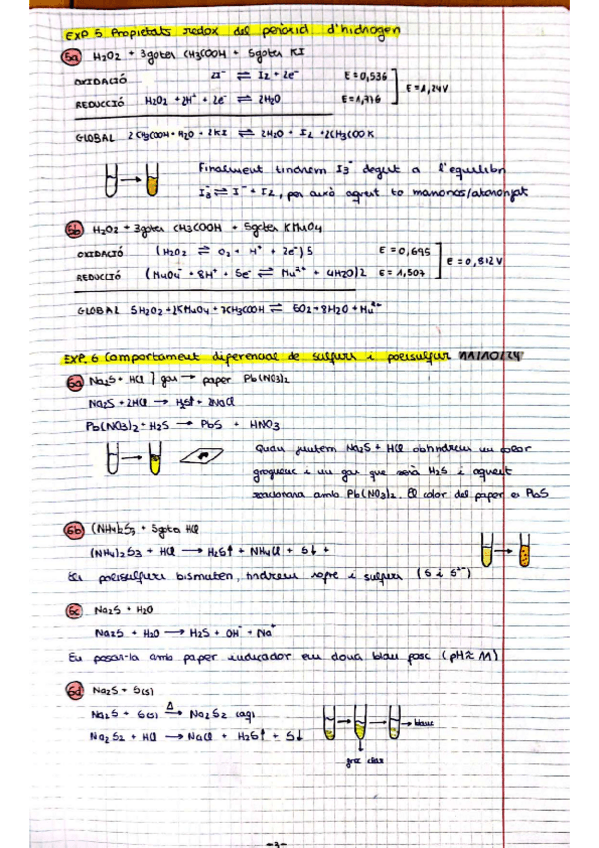 EXP 5 Propietats redox del peròxid d'hidrogen
5a H2O2 + 3gotes CH3COOH + 5gotes KI
OXIDACIÓ 2I⁻ ⇌ I2 + 2e⁻ E=0,536
E=1,24V
REDUCCIÓ H2O2 + 2H⁺ + 2e⁻ ⇌ 2H2O E=1,776
GLOBAL 2CH3COOH + H2O2 + 2KI ⇌ 2H2O + I2 + 2CH3COOK
Finalment tindrem I3⁻ degut a l'equilibri
I3⁻ ⇌ I⁻ + I2, per això aquest to marronós/ataronjat
5b H2O2 + 3gotes CH3COOH + 5gotes KMnO4
OXIDACIÓ (H2O2 ⇌ O2 + H⁺ + 2e⁻)5 E=0,695
E=0,812V
REDUCCIÓ (MnO4⁻ + 8H⁺ + 5e⁻ ⇌ Mn²⁺ + 4H2O)2 E=1,507
GLOBAL 5H2O2 + KMnO4 + CH3COOH ⇌ 5O2 + 8H2O + Mn²⁺
EXP. 6 Comportament diferencial de sulfurs i polisulfurs 11/10/24
6a Na2S + HCl ] gas → paper Pb(NO3)2
Na2S + 2HCl → H2S↑ + 2NaCl
Pb(NO3)2 + H2S → PbS + HNO3
Quan juntem Na2S + HCl obtindrem un color
groguenc i un gas que serà H2S i aquest
reacionarà amb Pb(NO3)2. El color del paper es PbS
6b (NH4)2S3 + 5gotes HCl
(NH4)2S3 + HCl → H2S↑ + NH4Cl + S↓ +
Els polisulfurs dismuten, tindrem sofre i sulfurs (S i S²⁻)
6c Na2S + H2O
Na2S + H2O → H2S + OH⁻ + Na⁺
En posar-la amb paper indicador em dona blau fosc (pH≈11)
6d Na2S + S(s)
Na2S + S(s) →Δ Na2S2 (aq)
→ blanc
Na2S2 + HCl → NaCl + H2S↑ + S↓
groc clar
-3-